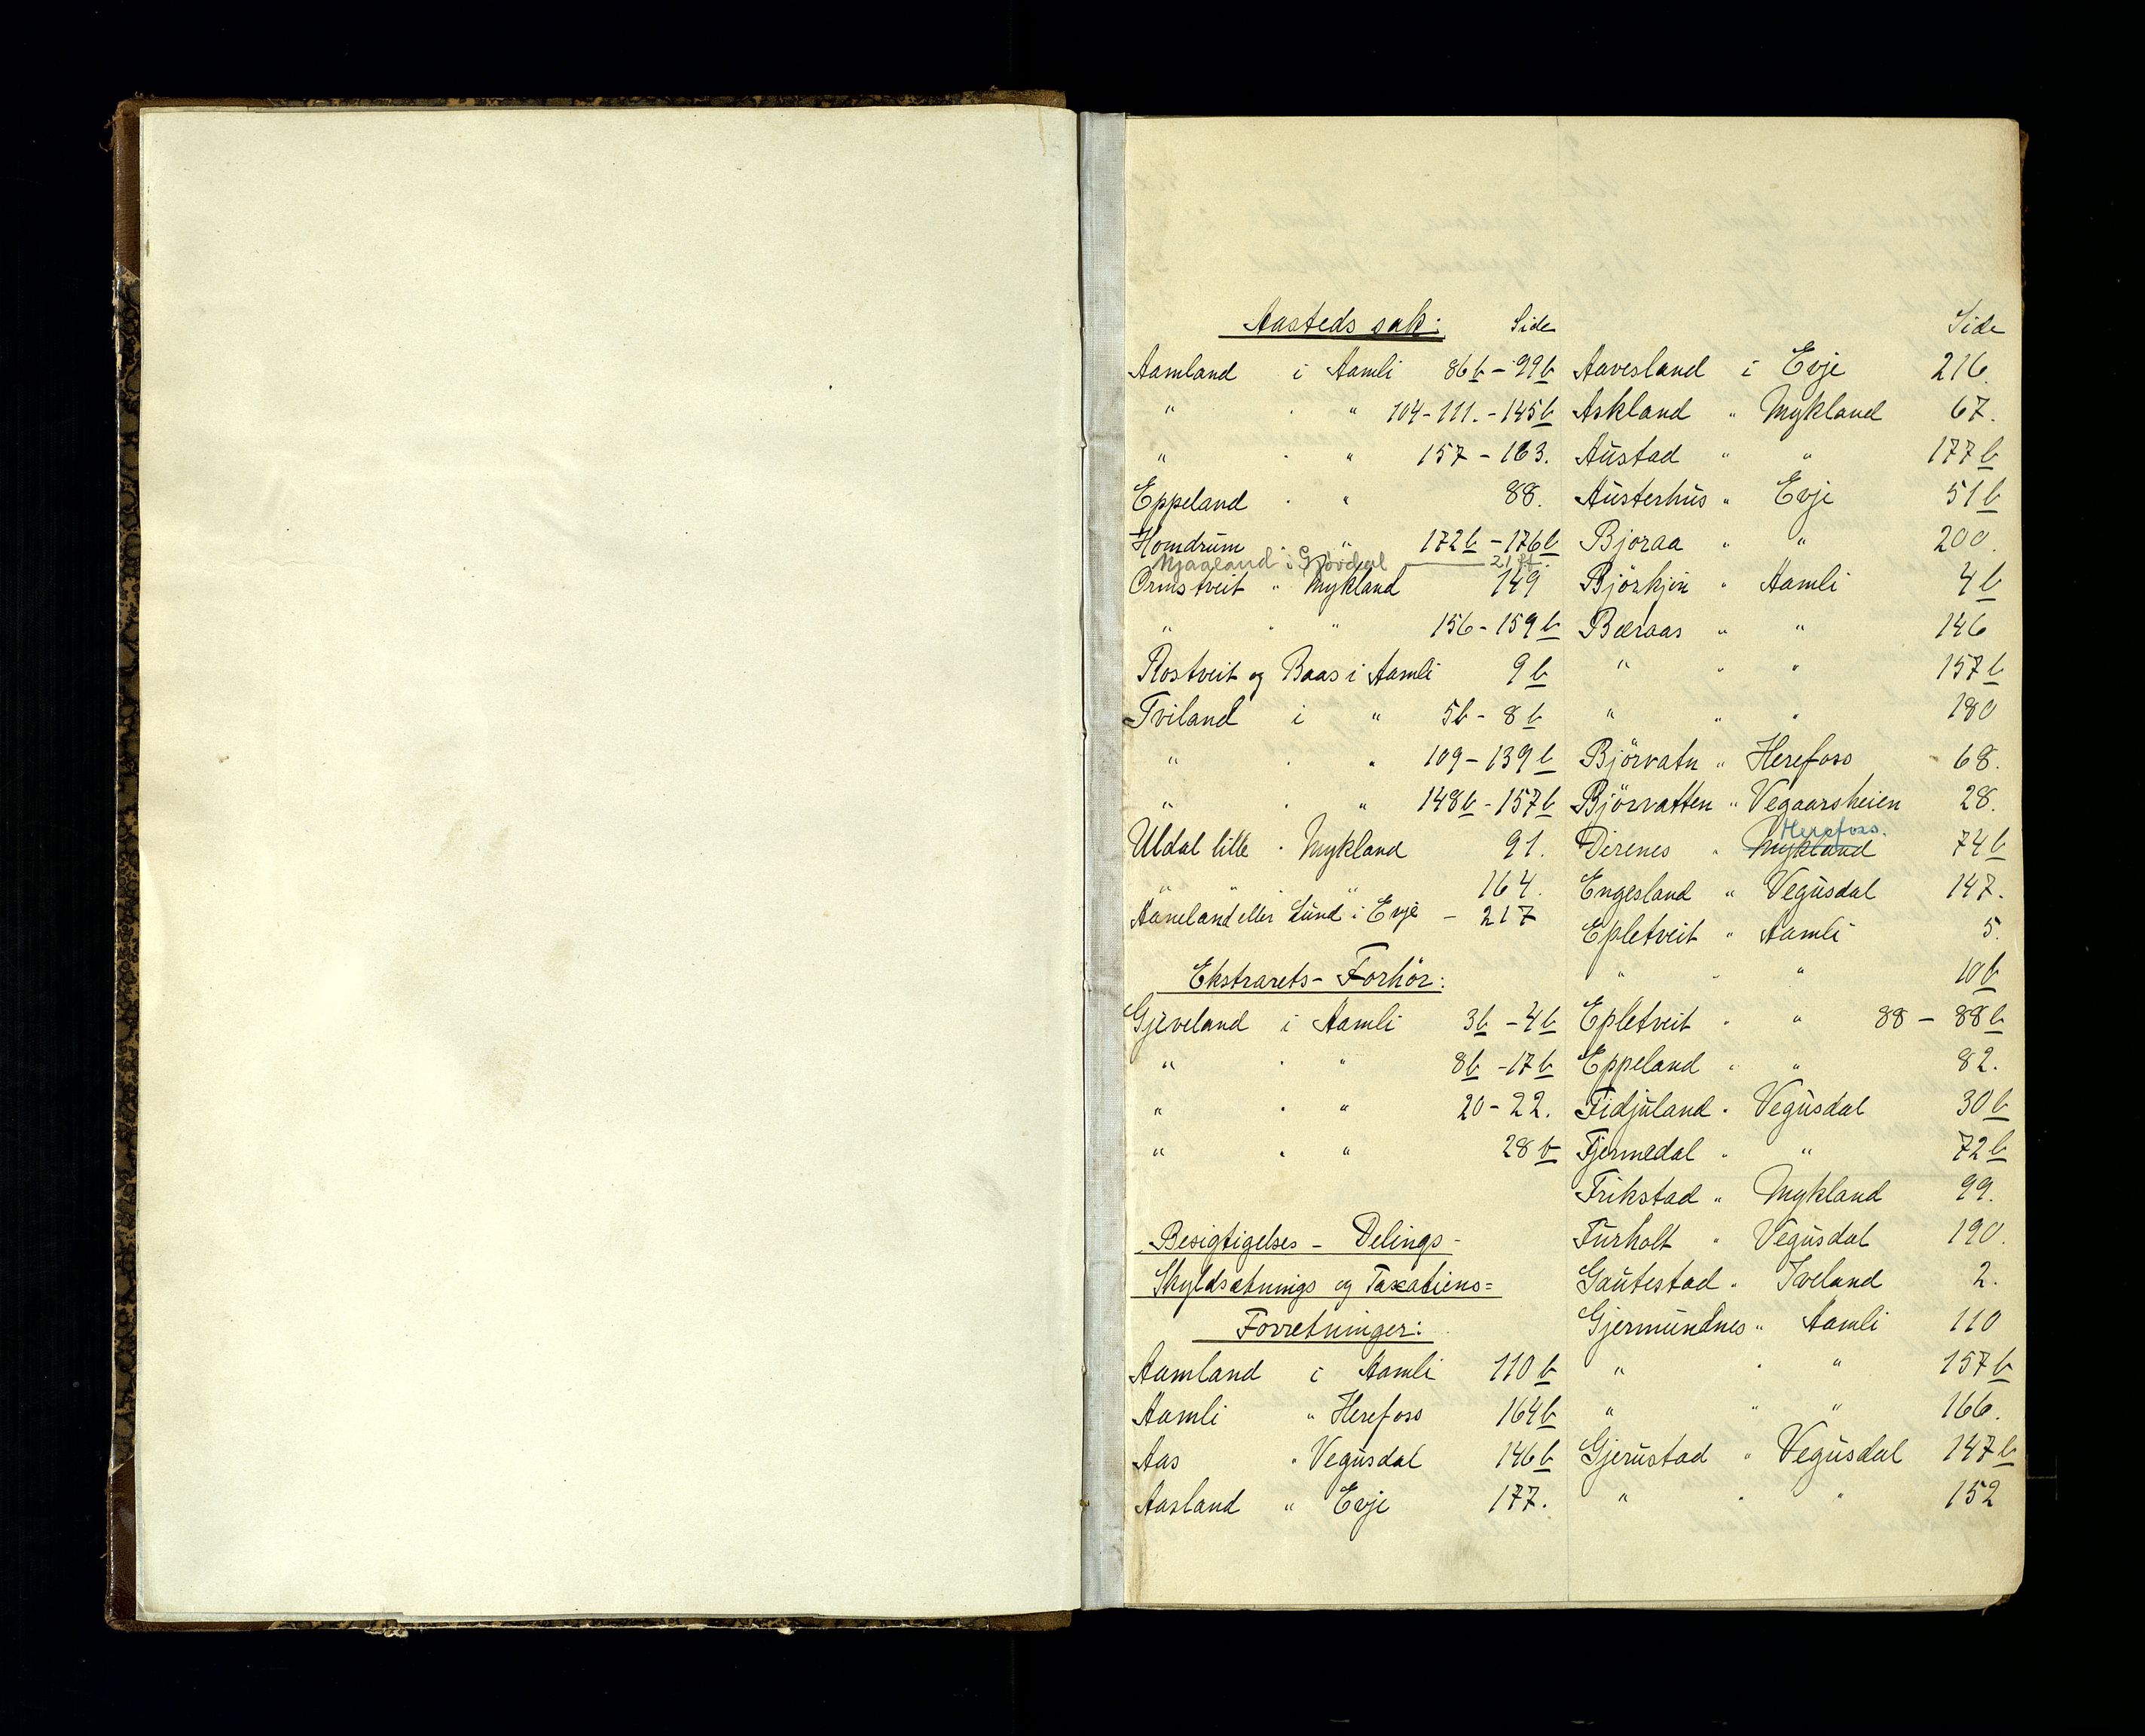 Aasteds sak: Side
Aamland i Aamli 86b - 99b
" " " 104 - 111. - 145b
" " " 157 - 163.
Eppeland " " 88.
Homdrum " " 172b - 176b
Mjaaland i Gjövdal
Ormstveit " Mykland 149
" " " 156 - 159b
Rostveit og Baas i Aamli 9b
Tviland i " 5b - 8b
" " " 109 - 139b
" " " 148b - 157b
Uldal lille " Mykland 91.
" " " 164.
Aaneland eller Lund i Evje - 217
Ekstrarets - Forhör:
Gjeveland i Aamli 3b - 4b
" " " 8b - 17b
" " " 20 - 22.
" " " 28b
Besigtigelses - Delings -
Skyldsætnings og Taxations =
Forretninger:
Aamland i Aamli 110b
Aamli " Herefoss 164b
Aas " Vegusdal 146b
Aasland " Evje 177.
Side
Aavesland i Evje 216.
Askland " Mykland 67.
Austad " " 177b
Austerhus " Evje 51b
Bjoraa " " 200.
Björkjin " Aamli 4b
Bæraas " " 146
" " " 157b
" " " 180
Björvatn " Herefoss 68.
Björvatten " Vegaarsheien 28.
Herefoss.
Direnes " Mykland 74b
Engesland " Vegusdal 147.
Epletveit " Aamli 5.
" " " 10b
Epletveit " " 88 - 88b
Eppeland " " 82.
Fidjuland " Vegusdal 30b
Fjermedal " " 72b
Frikstad " Mykland 99.
Furholt " Vegusdal 190.
Gautestad " Iveland 2.
Gjermundnes " Aamli 110
" " " 157b
" " " 166.
Gjerustad " Vegusdal 147b
" " " 152